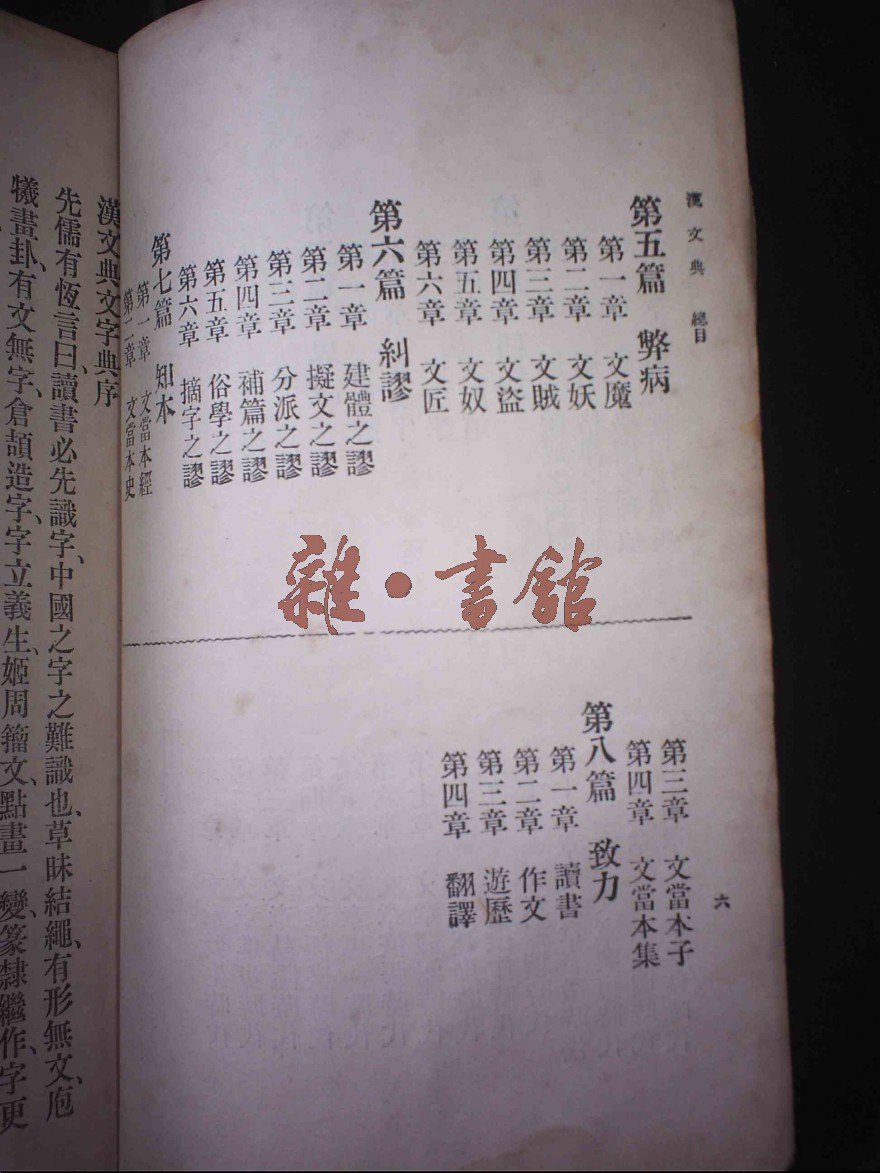 漢文典 總目
第五篇 弊病
第一章 文魔
第二章 文妖
第三章 文賊
第四章 文盜
第五章 文奴
第六章 文匠
第六篇 糾謬
第一章 建體之謬
第二章 擬文之謬
第三章 分派之謬
第四章 補篇之謬
第五章 俗學之謬
第六章 摘字之謬
第七篇 知本
第一章 文當本經
第二章 文當本史
第三章 文當本子
第四章 文當本集
第八篇 致力
第一章 讀書
第二章 作文
第三章 遊歷
第四章 翻譯
六
雜·書館
漢文典文字典序
先儒有恆言曰、讀書必先識字、中國之字之難識也、草昧結繩、有形無文、庖
犧畫卦、有文無字、倉頡造字、字立義生、姬周籀文、點畫一變、篆隸繼作、字更